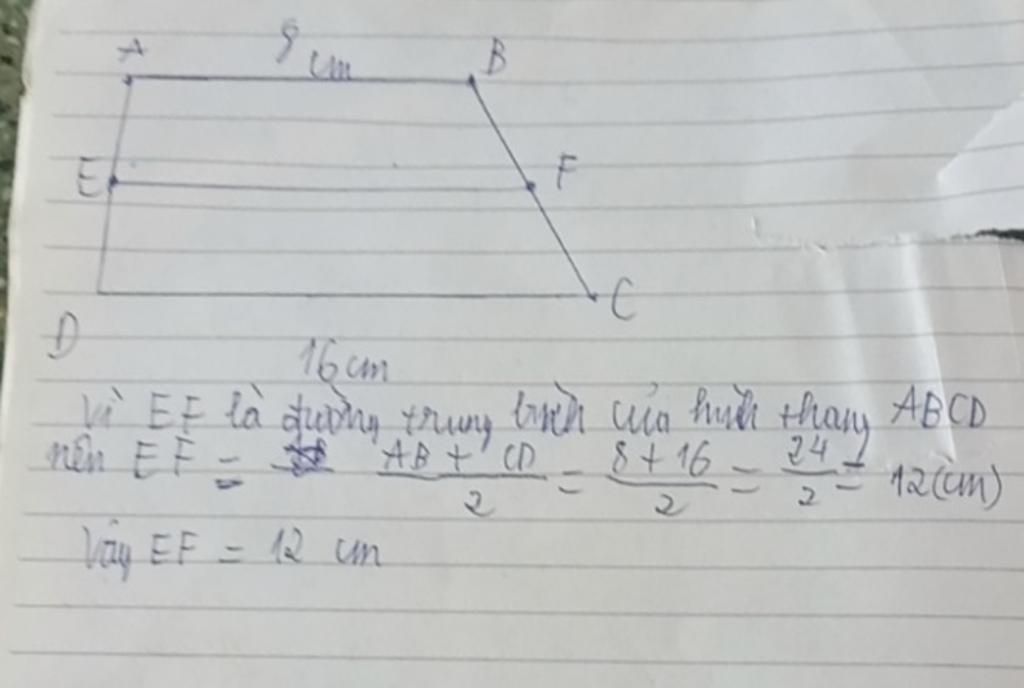 A 8 cm B
E F
D C
16 cm
Vì EF là đường trung bình của hình thang ABCD
nên EF = AB + CD / 2 = 8 + 16 / 2 = 24 / 2 = 12 (cm)
Vậy EF = 12 cm